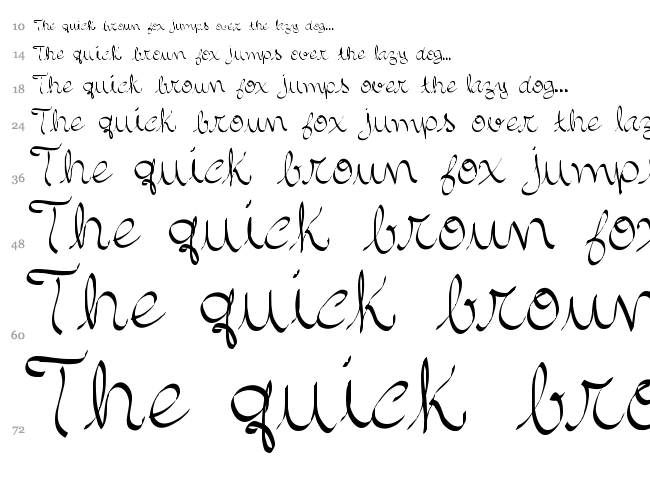 10 The quick broun fox jumps over the lazy dog...
14 The quick broun fox jumps over the lazy dog...
18 The quick broun fox jumps over the lazy dog...
24 The quick broun fox jumps over the laz
36 The quick broun fox jumps
48 The quick broun fox
60 The quick broun
72 The quick bro